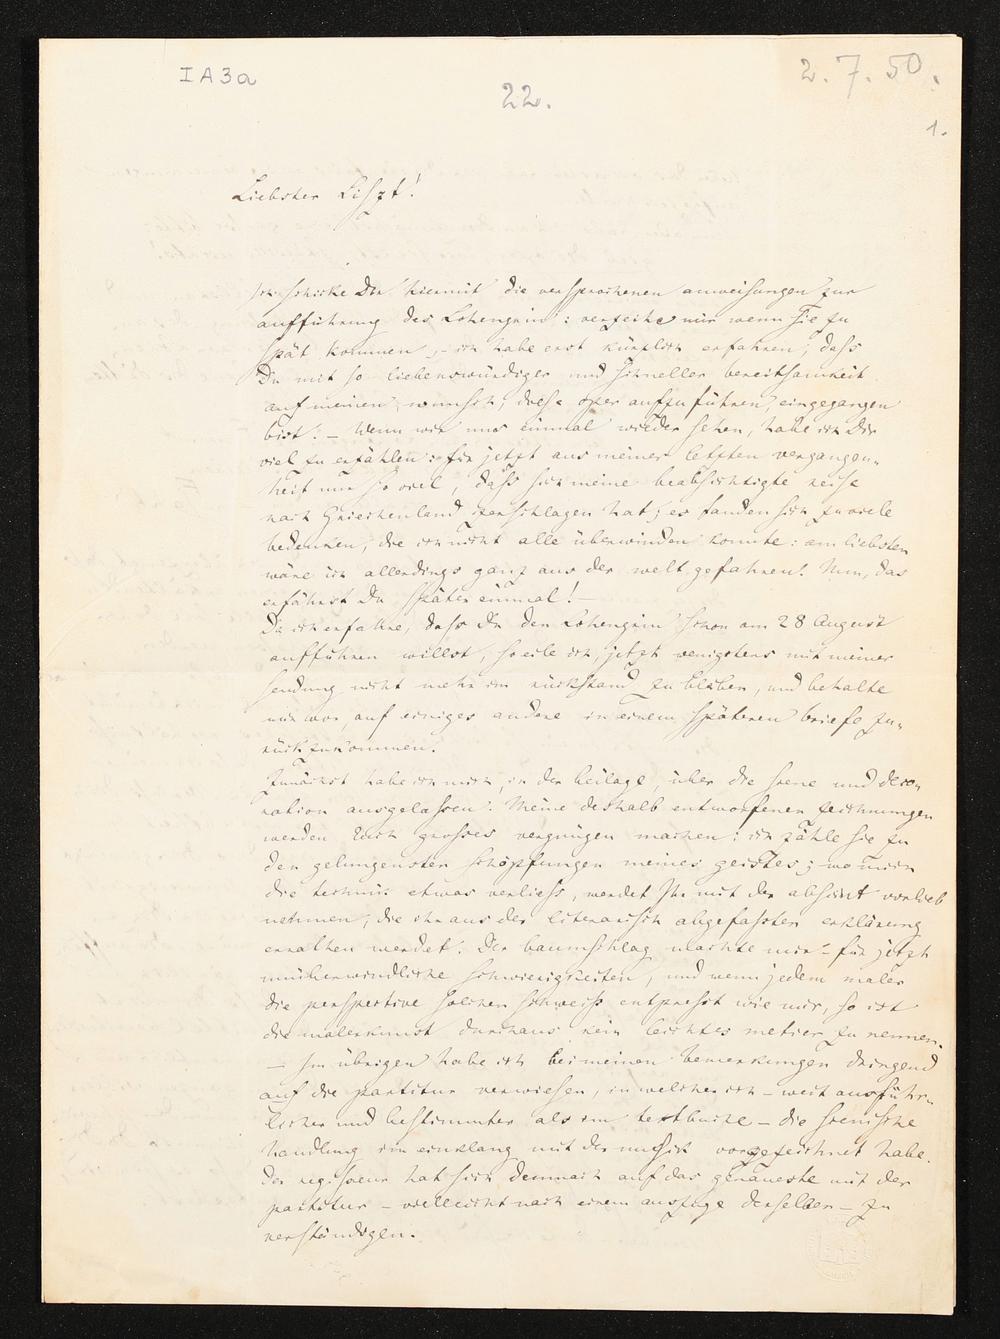 I A 3 a
22.
2. 7. 50.
1.
Liebster Liszt!
Ich schicke Dir hiermit die versprochenen anweisungen zur
aufführung des Lohengrin: verzeihe mir wenn sie zu
spät kommen, – ich habe erst kürzlich erfahren, dass
Du mit so liebenswürdiger und schneller bereitsamkeit
auf meinen wunsch, diese oper aufzuführen, eingegangen
bist. – Wenn wir uns einmal wieder sehen, habe ich Dir
viel zu erzählen: für jetzt aus meiner letzten vergangen-
heit nur so viel, dass sich meine beabsichtigte reise
nach Griechenland zerschlagen hat; es fanden sich zu viele
bedenken, die ich nicht alle überwinden konnte: am liebsten
wäre ich allerdings ganz aus der welt gefahren! Nun, das
erfährst Du später einmal! –
Da ich erfahre, dass Du den Lohengrin schon am 28 August
aufführen willst, so eile ich, jetzt wenigstens mit meiner
sendung nicht mehr im rückstand zu bleiben, und behalte
mir vor, auf einiges andere in einem späteren briefe zu-
rückzukommen.
Zunächst habe ich mich, in der beilage, über die scene und deco-
ration ausgelassen. Meine deshalb entworfenen zeichnungen
werden Euch grosses vergnügen machen: ich zähle sie zu
den gelungensten schöpfungen meines geistes; wo mich
die technik etwas verliess, werdet Ihr mit der absicht vorlieb
nehmen, die ihr aus der literarisch abgefassten erklärung
errathen werdet. Der baumschlag machte mir – für jetzt
unüberwindliche schwierigkeiten, und wenn jedem maler
die perspective solchen schweiss entpresst wie mir, so ist
die malerkunst durchaus kein leichtes metier zu nennen.
– Im übrigen habe ich bei meinen bemerkungen dringend
auf die partitur verwiesen, in welcher ich – weit ausführ-
licher und bestimmter als im textbuche – die scenische
handlung im einklang mit der musik vorgezeichnet habe.
Der regisseur hat sich demnach auf das genaueste mit der
partitur – vielleicht nach einem auszuge derselben – zu
verständigen.